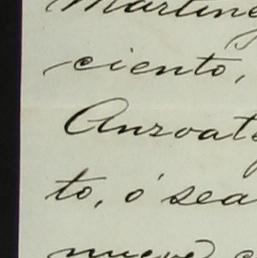 Martine
ciento,
Anzoate
to, ó sea
nueve c